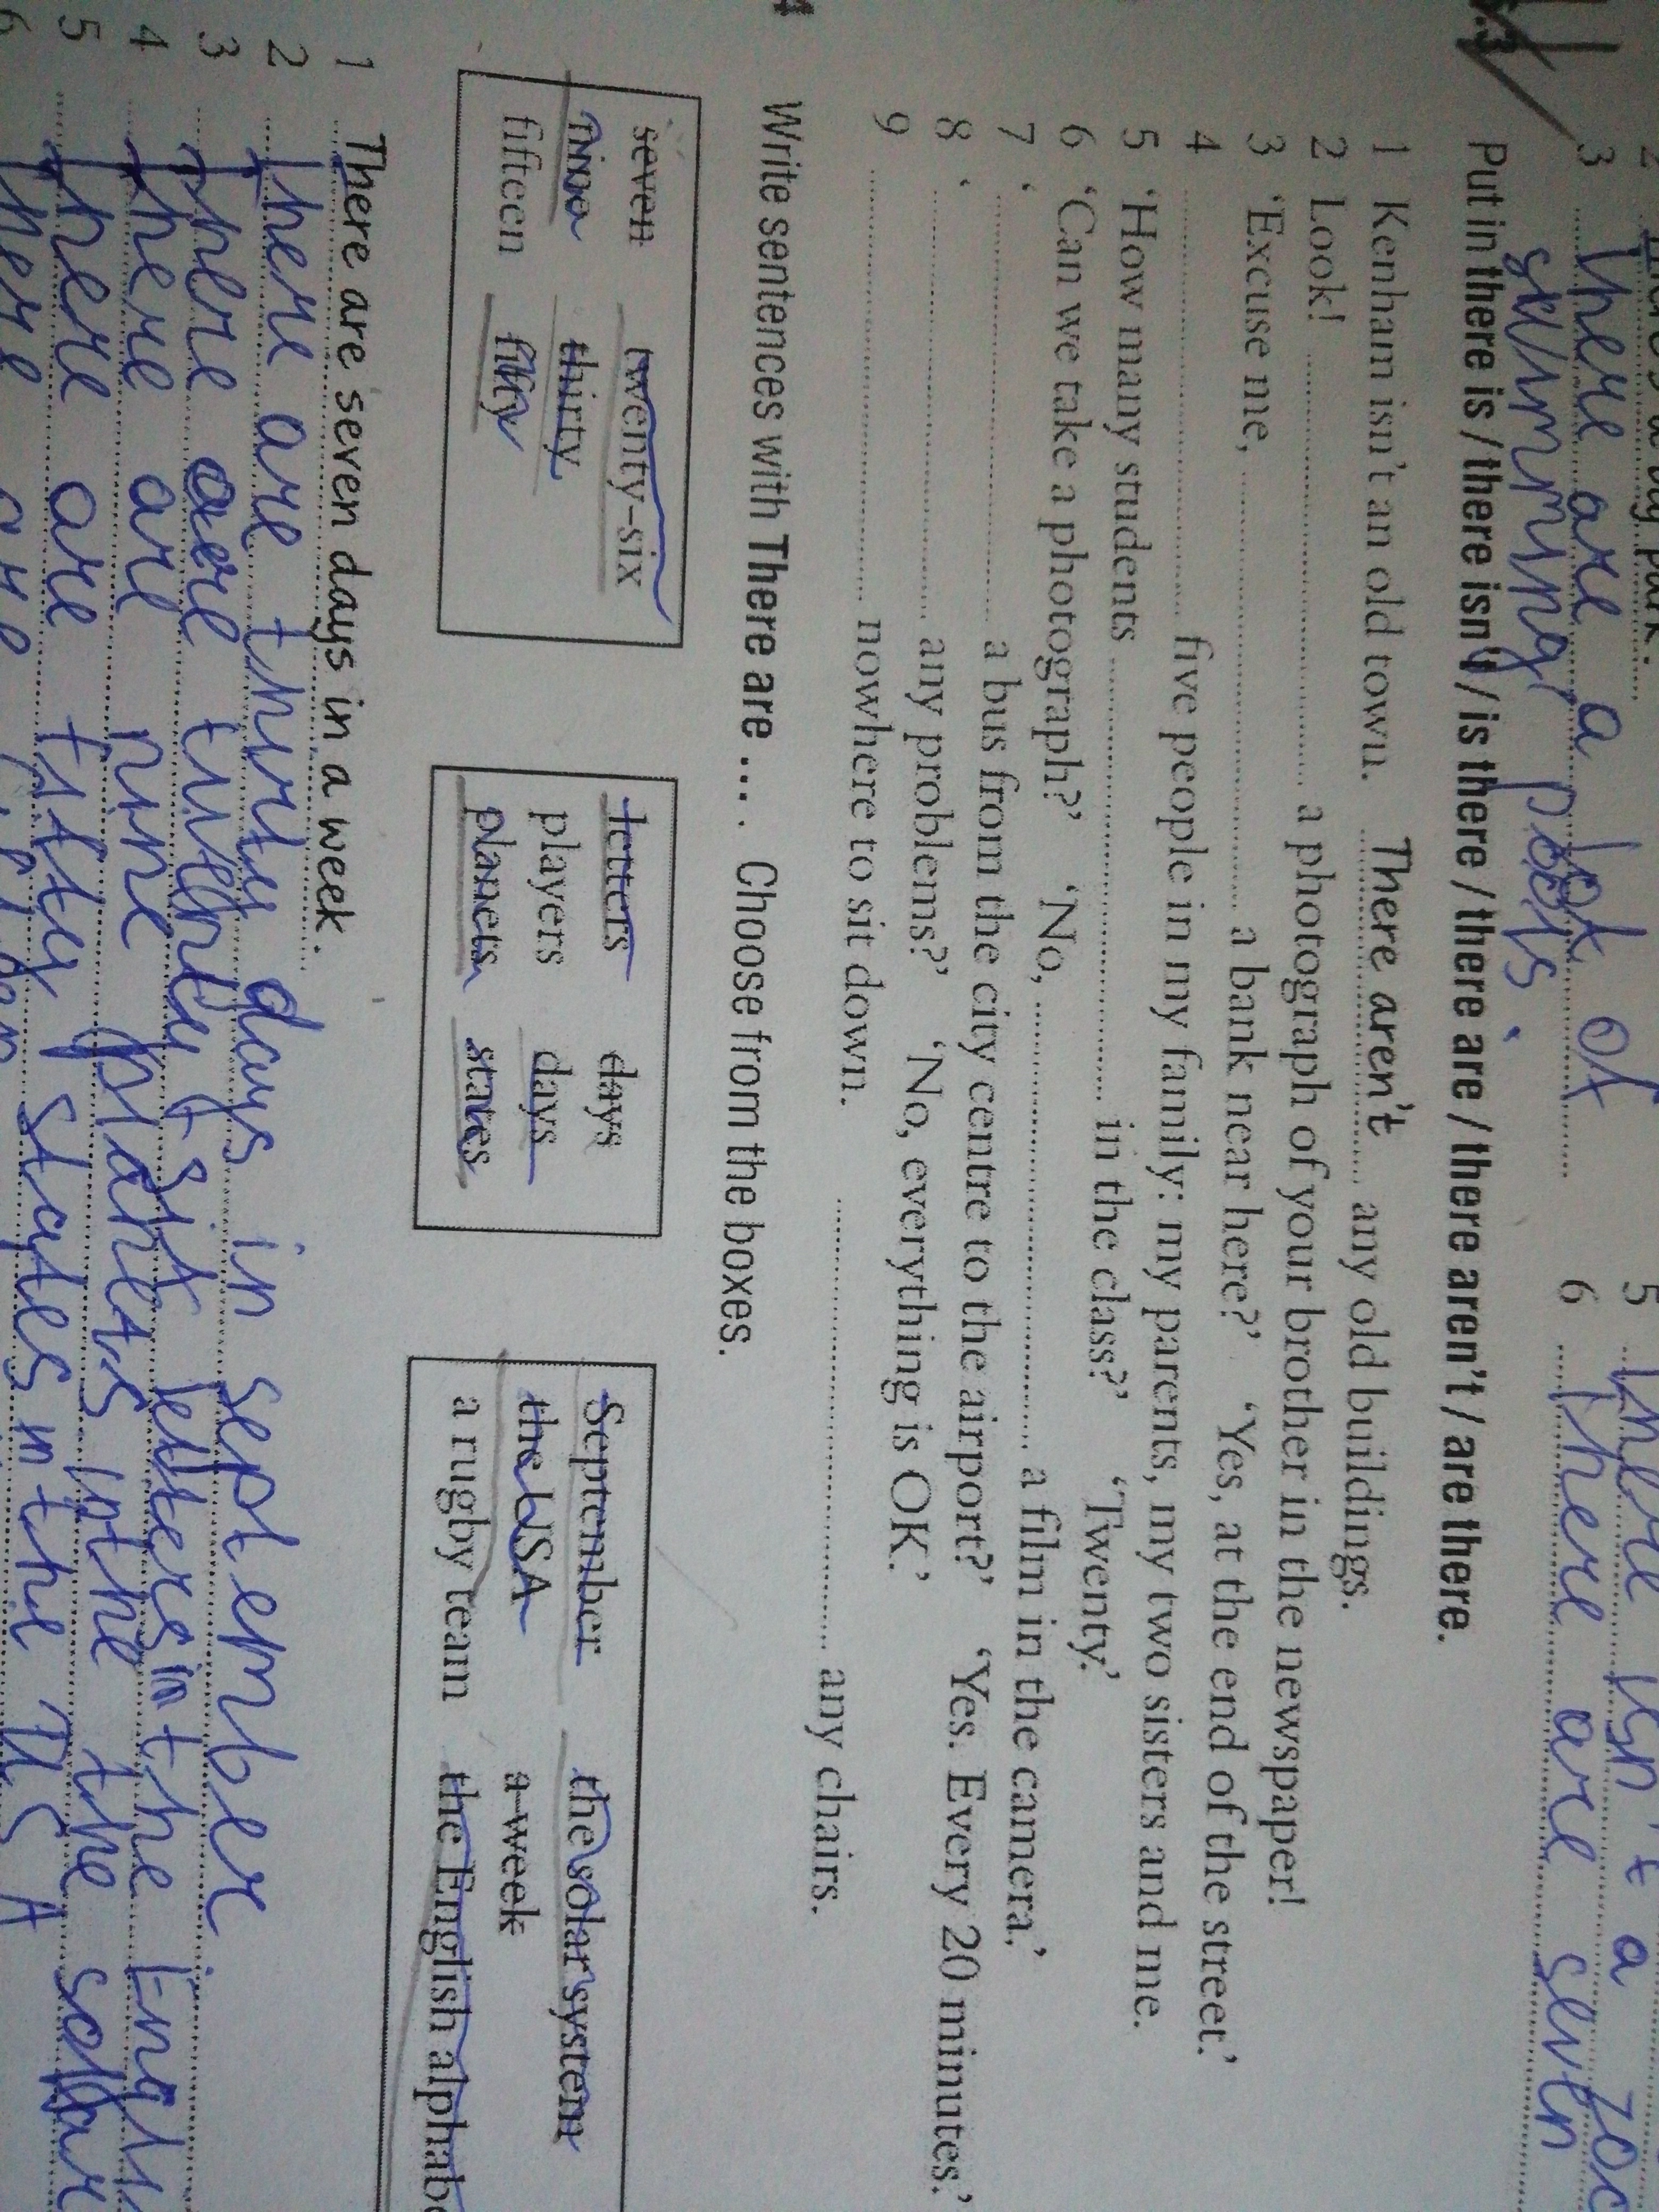 3 There are a lot of
swimming pools.
5 There isn't a
6 There are seven
Put in there is / there isn't / is there / there are / there aren't / are there.
1 Kenham isn't an old town. There aren't any old buildings.
2 Look! a photograph of your brother in the newspaper!
3 'Excuse me, a bank near here?' 'Yes, at the end of the street.'
4 five people in my family: my parents, my two sisters and me.
5 'How many students in the class?' 'Twenty.'
6 'Can we take a photograph?' 'No, a film in the camera.'
7 ' a bus from the city centre to the airport?' 'Yes. Every 20 minutes.'
8 ' any problems?' 'No, everything is OK.'
9 nowhere to sit down. any chairs.
4 Write sentences with There are … . Choose from the boxes.
seven twenty-six
nine thirty
fifteen fifty
letters days
players days
planets states
September the solar system
the USA a week
a rugby team the English
1 There are seven days in a week.
2 There are thirty days in september
3 There are twenty six letters in the
4 There are nine planets in the the
5 There are fifty states in the USA
6